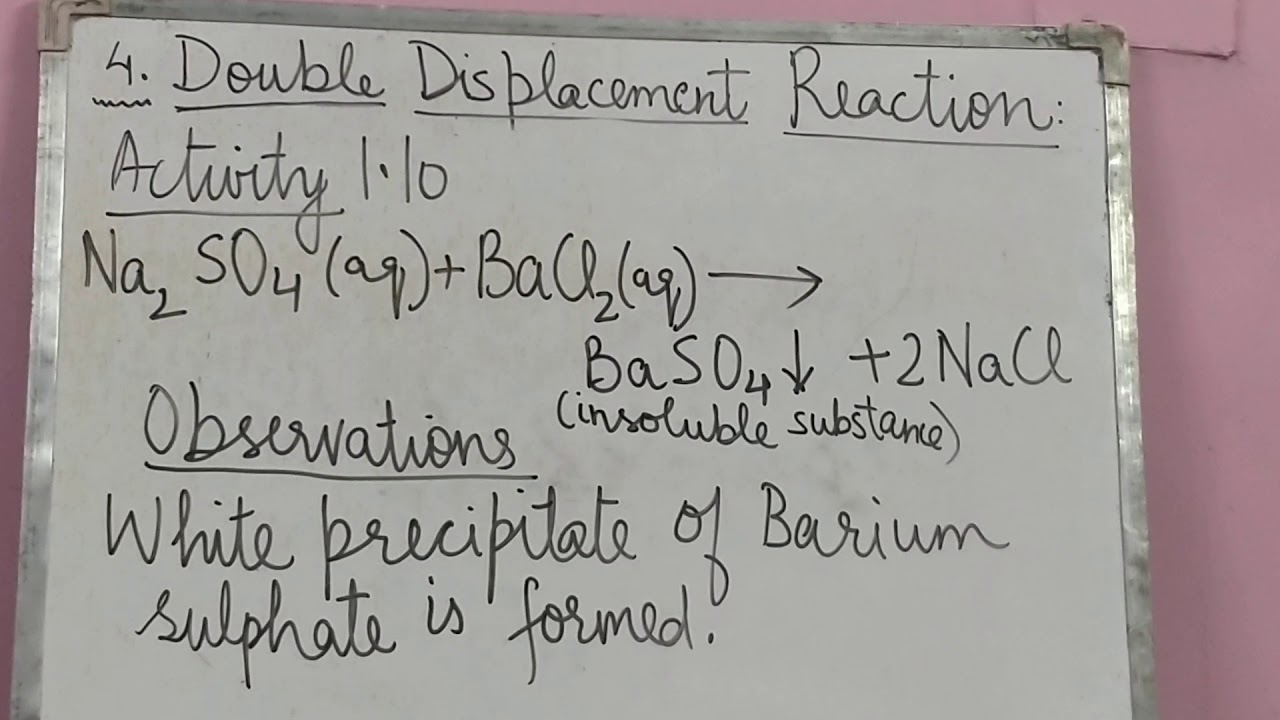 4. Double Displacement Reaction:
Activity 1.10
Na₂SO₄(aq)+BaCl₂(aq)⟶
BaSO₄↓ +2NaCl
(insoluble substance)
Observations
White precipitate of Barium
sulphate is formed.